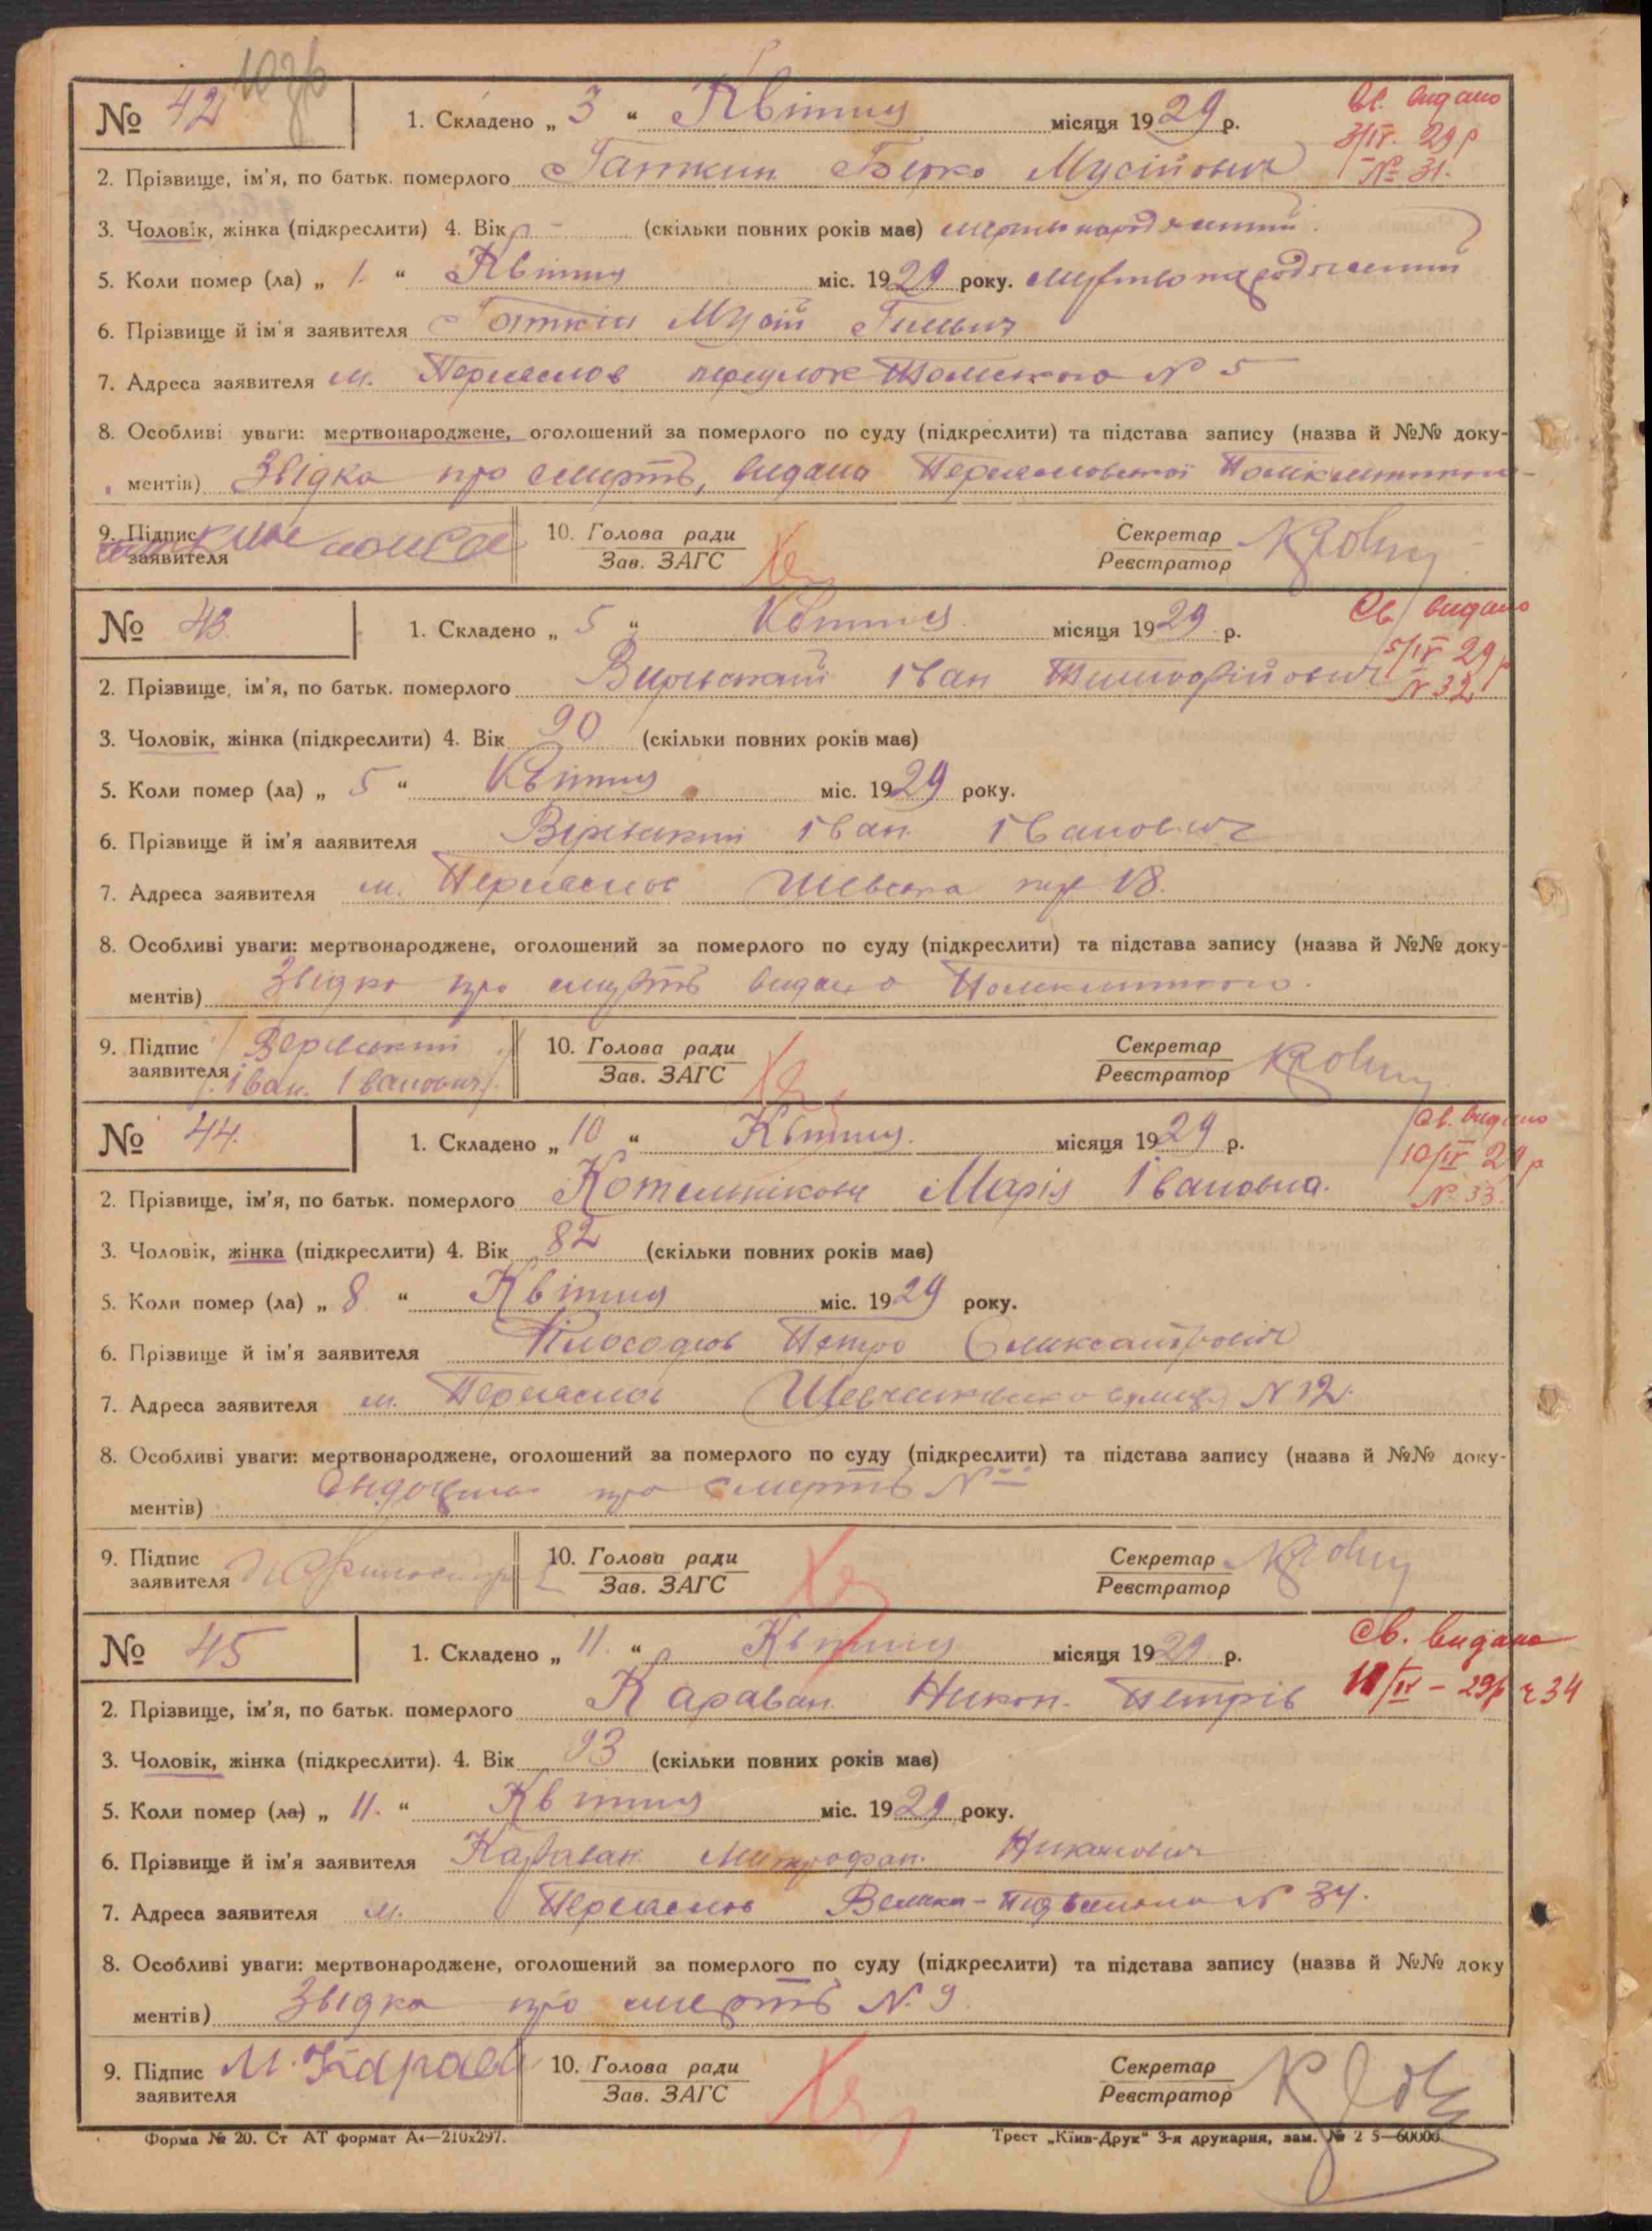 № 42 1. Складено „ 3 “ Квітня місяця 1929 р. Св. видано
3/IV. 29 р
№ 31.
2. Прізвище, ім'я, по батьк. померлого Гаткин Берко Мусійович
3. Чоловік, жінка (підкреслити) 4. Вік - (скільки повних років має) мертвонароджений.
5. Коли помер (ла) „ 1. “ Квітня міс. 1929 року. мертвонароджений
6. Прізвище й ім'я заявителя Гаткін Мусій
7. Адреса заявителя м. Переяслов № 5
8. Особливі уваги: мертвонароджене, оголошений за померлого по суду (підкреслити) та підстава запису (назва й №№ доку-
ментів) Звідка про смерть, видана Переяславської Полікліникою
9. Підпис заявителя 10. Голова ради Секретар
Зав. ЗАГС Реєстратор
№ 43. 1. Складено „ 5 “ Квітня місяця 1929 р. Св. видано
5/IV 29 р
N 32
2. Прізвище, ім'я, по батьк. померлого Вирський Іван Тимофійович
3. Чоловік, жінка (підкреслити) 4. Вік 90 (скільки повних років має)
5. Коли помер (ла) „ 5 “ Квітня міс. 1929 року.
6. Прізвище й ім'я ааявителя Вірський Іван Іванович
7. Адреса заявителя м. Переяслов 18.
8. Особливі уваги: мертвонароджене, оголошений за померлого по суду (підкреслити) та підстава запису (назва й №№ доку-
ментів) Звідка про смерть видана Поликлиникою.
9. Підпис заявителя Іван Іванович 10. Голова ради Секретар
Зав. ЗАГС Реєстратор
№ 44. 1. Складено „ 10 “ Квітня. місяця 1929 р. Св. видано
10/IV 29 р
№ 33.
2. Прізвище, ім'я, по батьк. померлого Котельнікова Марія Івановна.
3. Чоловік, жінка (підкреслити) 4. Вік 82 (скільки повних років має)
5. Коли помер (ла) „ 8 “ Квітня міс. 1929 року.
6. Прізвище й ім'я заявителя Філософов Петро Олександрович
7. Адреса заявителя м. Переяслов Шевченківська N 12.
8. Особливі уваги: мертвонароджене, оголошений за померлого по суду (підкреслити) та підстава запису (назва й №№ доку-
ментів) про смерть N
9. Підпис заявителя 10. Голова ради Секретар
Зав. ЗАГС Реєстратор
№ 45 1. Складено „ 11. “ Квітня місяця 1929 р. Св. видано
11/IV – 29р 34
2. Прізвище, ім'я, по батьк. померлого Караван Никон. Петрів
3. Чоловік, жінка (підкреслити). 4. Вік 93 (скільки повних років має)
5. Коли помер (ла) „ 11. “ Квітня міс. 1929 року.
6. Прізвище й ім'я заявителя Караван Митрофан. Никонович
7. Адреса заявителя м. Переяслов Велика-Підвальна N 34.
8. Особливі уваги: мертвонароджене, оголошений за померлого по суду (підкреслити) та підстава запису (назва й №№ доку
ментів) Звідка про смерть N. 9
9. Підпис заявителя М. Карав 10. Голова ради Секретар
Зав. ЗАГС Реєстратор
Форма № 20. Ст АТ формат А4—210х297. Трест „Київ-Друк“ 3-я друкарня, зам. № 2 5—60000.